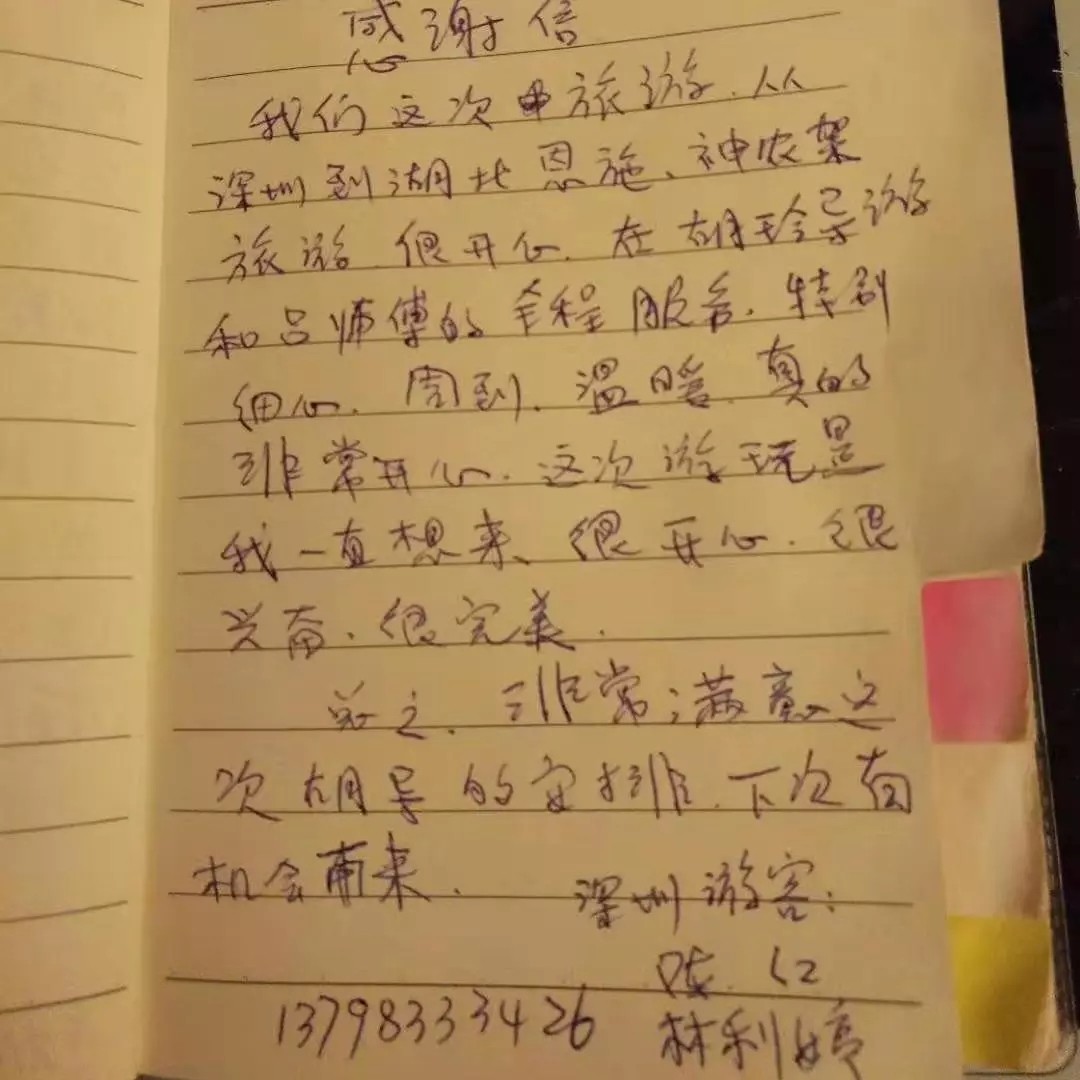 感谢信
我们这次旅游.从
深圳到湖北恩施、神农架
旅游.很开心.在胡玲导游
和吕师傅的全程服务.特别
细心.周到.温暖.真的
非常开心.这次游玩是
我一直想来、很开心.很
兴奋、很完美.
总之.非常满意这
次胡导的安排.下次有
机会再来.
深圳游客:
陈红
13798333426
林利婷